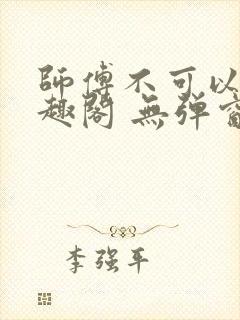 師傅不可以
趣閣 無弹
李强平